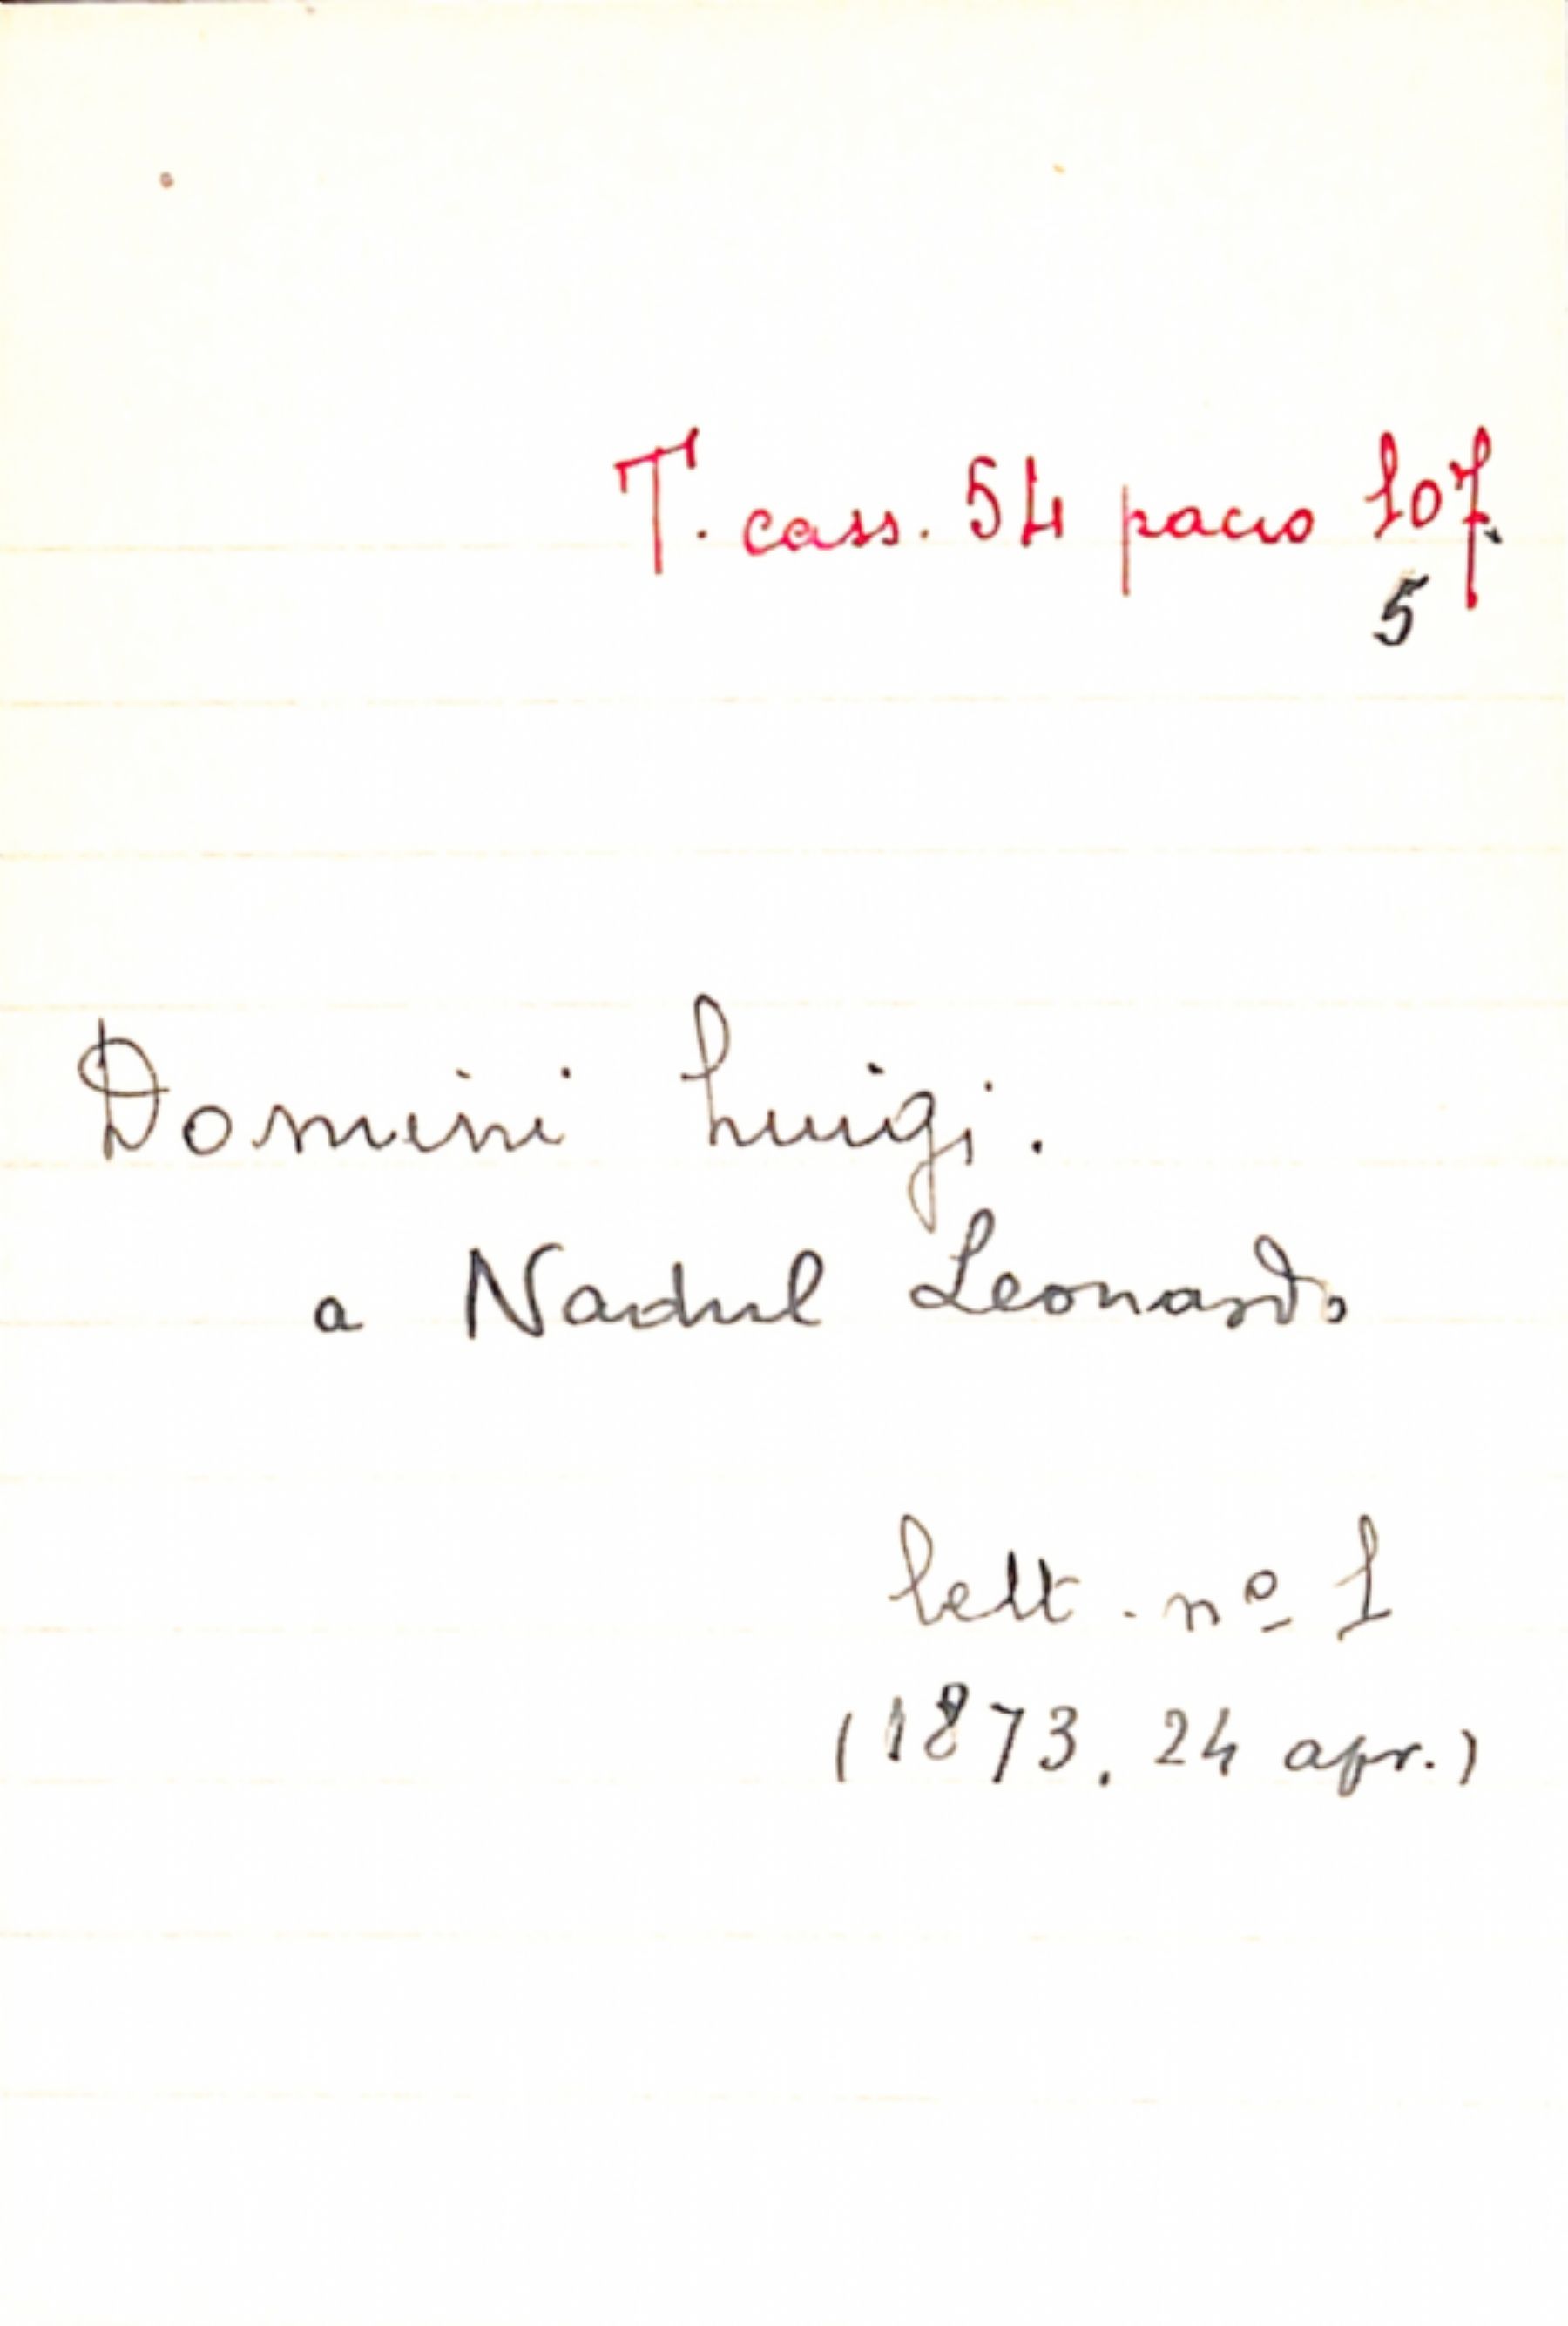 T. cass. 54 pacco 107.
5
Domini Luigi.
a Nadul Leonardo
lett. nº 1
(1873, 24 apr.)